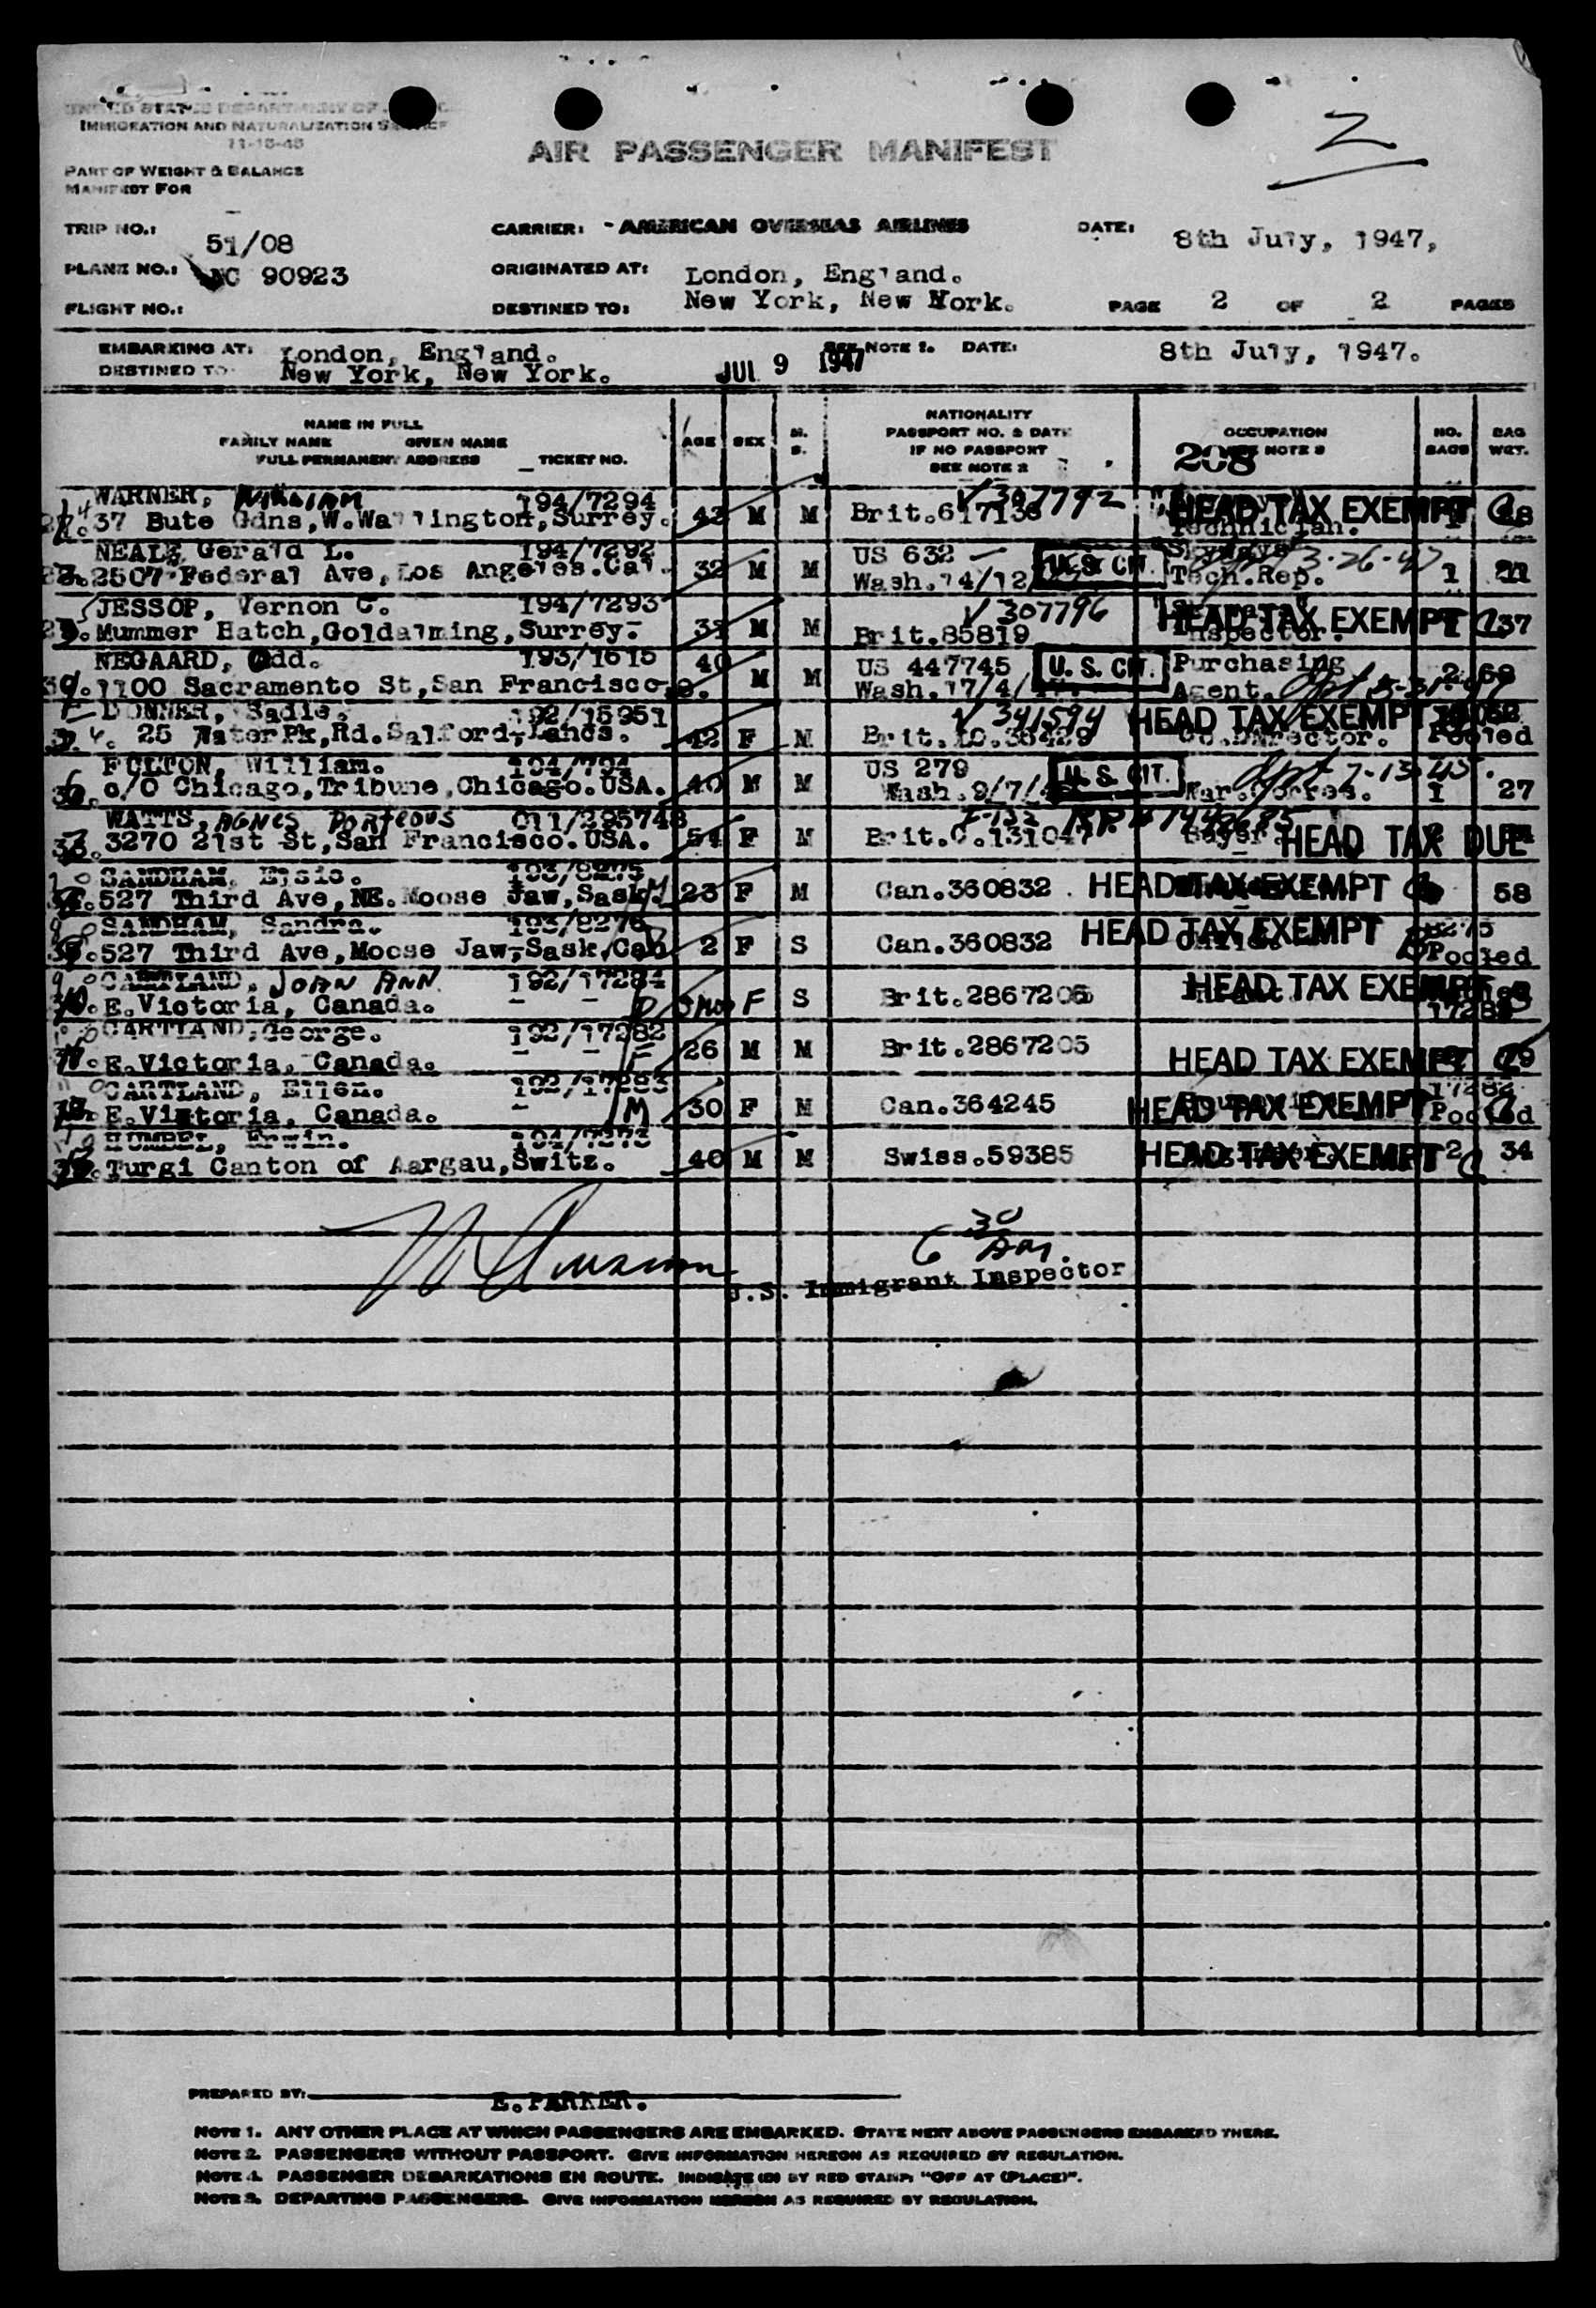 UNITED STATES DEPARTMENT OF
IMMIGRATION AND NATURALIZATION SERVICE
11-15-45
AIR PASSENGER MANIFEST
2
PART OF WEIGHT & BALANCE
MANIFEST FOR
TRIP NO.: 51/08 CARRIER: - AMERICAN OVERSEAS AIRLINES DATE: 8th July, 1947,
PLANE NO.: NC 90923 ORIGINATED AT: London, England.
FLIGHT NO.: DESTINED TO: New York, New York. PAGE 2 OF 2 PAGES
EMBARKING AT: London, England. SEE NOTE 1. DATE: 8th July, 1947.
DESTINED TO New York, New York. JUL 9 1947
NAME IN FULL
FAMILY NAME GIVEN NAME
FULL PERMANENT ADDRESS TICKET NO. AGE SEX M. S. NATIONALITY PASSPORT NO. & DATE IF NO PASSPORT SEE NOTE 2 OCCUPATION NOTE 3 NO. BAGS BAG WGT.
208
WARNER, William 194/7294 V 307792
37 Bute Gdns,W.Wallington,Surrey. 43 M M Brit.617138 HEAD TAX EXEMPT Technician. 1 28
NEALE Gerald L. 194/7292 US 632 U.S. CIT. 3-26-47
2507 Federal Ave,Los Angeles.Cal. 32 M M Wash.14/12/ Tech.Rep. 1 21
JESSOP, Vernon C. 194/7293 V 307796
Mummer Hatch,Goldalming,Surrey. M M Brit.85819 HEAD TAX EXEMPT Inspector. 1 37
NEGAARD, Odd. 193/1615 40 US 447745 U. S. CIT. Purchasing
1100 Sacramento St,San Francisco M M Wash.17/4/ Agent. 2 68
DONNER, Sadie. 192/15951 V 341594 HEAD TAX EXEMPT
25 Water Pk,Rd.Salford,Lancs. 42 F M Co.Director. Pooled
FULTON, William. US 279 U. S. CIT. 7-13-45.
c/o Chicago,Tribune,Chicago.USA. 40 M M Wash.9/7/ War.Corres. 1 27
WATTS, AGNES PORTEOUS 011/295748
3270 21st St,San Francisco.USA. 54 F M Brit.C.131047 HEAD TAX DUE
SANDHAM, Elsie. 193/8275
527 Third Ave,NE.Moose Jaw,Sask. 23 F M Can.360832 HEAD TAX EXEMPT 58
SANDHAM, Sandra. 193/8276 8275
527 Third Ave,Moose Jaw,Sask,Can 2 F S Can.360832 HEAD TAX EXEMPT Pooled
CARTLAND, JOAN ANN 192/17284
E.Victoria, Canada. F S Brit.2867205 HEAD TAX EXEMPT
CARTLAND,George. 192/17282
E.Victoria, Canada. 26 M M Brit.2867205 HEAD TAX EXEMPT
CARTLAND, Ellen. 192/17283 17282
E.Victoria, Canada. 30 F M Can.364245 HEAD TAX EXEMPT Pooled
HUMBEL, Erwin.
Turgi Canton of Aargau,Switz. 40 M M Swiss.59385 HEAD TAX EXEMPT 2 34
6 30 AM.
U.S. Immigrant Inspector
PREPARED BY: E. PARKER.
NOTE 1. ANY OTHER PLACE AT WHICH PASSENGERS ARE EMBARKED. STATE NEXT ABOVE PASSENGERS EMBARKED THERE.
NOTE 2. PASSENGERS WITHOUT PASSPORT. GIVE INFORMATION HEREON AS REQUIRED BY REGULATION.
NOTE 4. PASSENGER DEBARKATIONS EN ROUTE. INDICATE (D) BY RED STAMP "OFF AT (PLACE)".
NOTE 3. DEPARTING PASSENGERS. GIVE INFORMATION HEREON AS REQUIRED BY REGULATION.